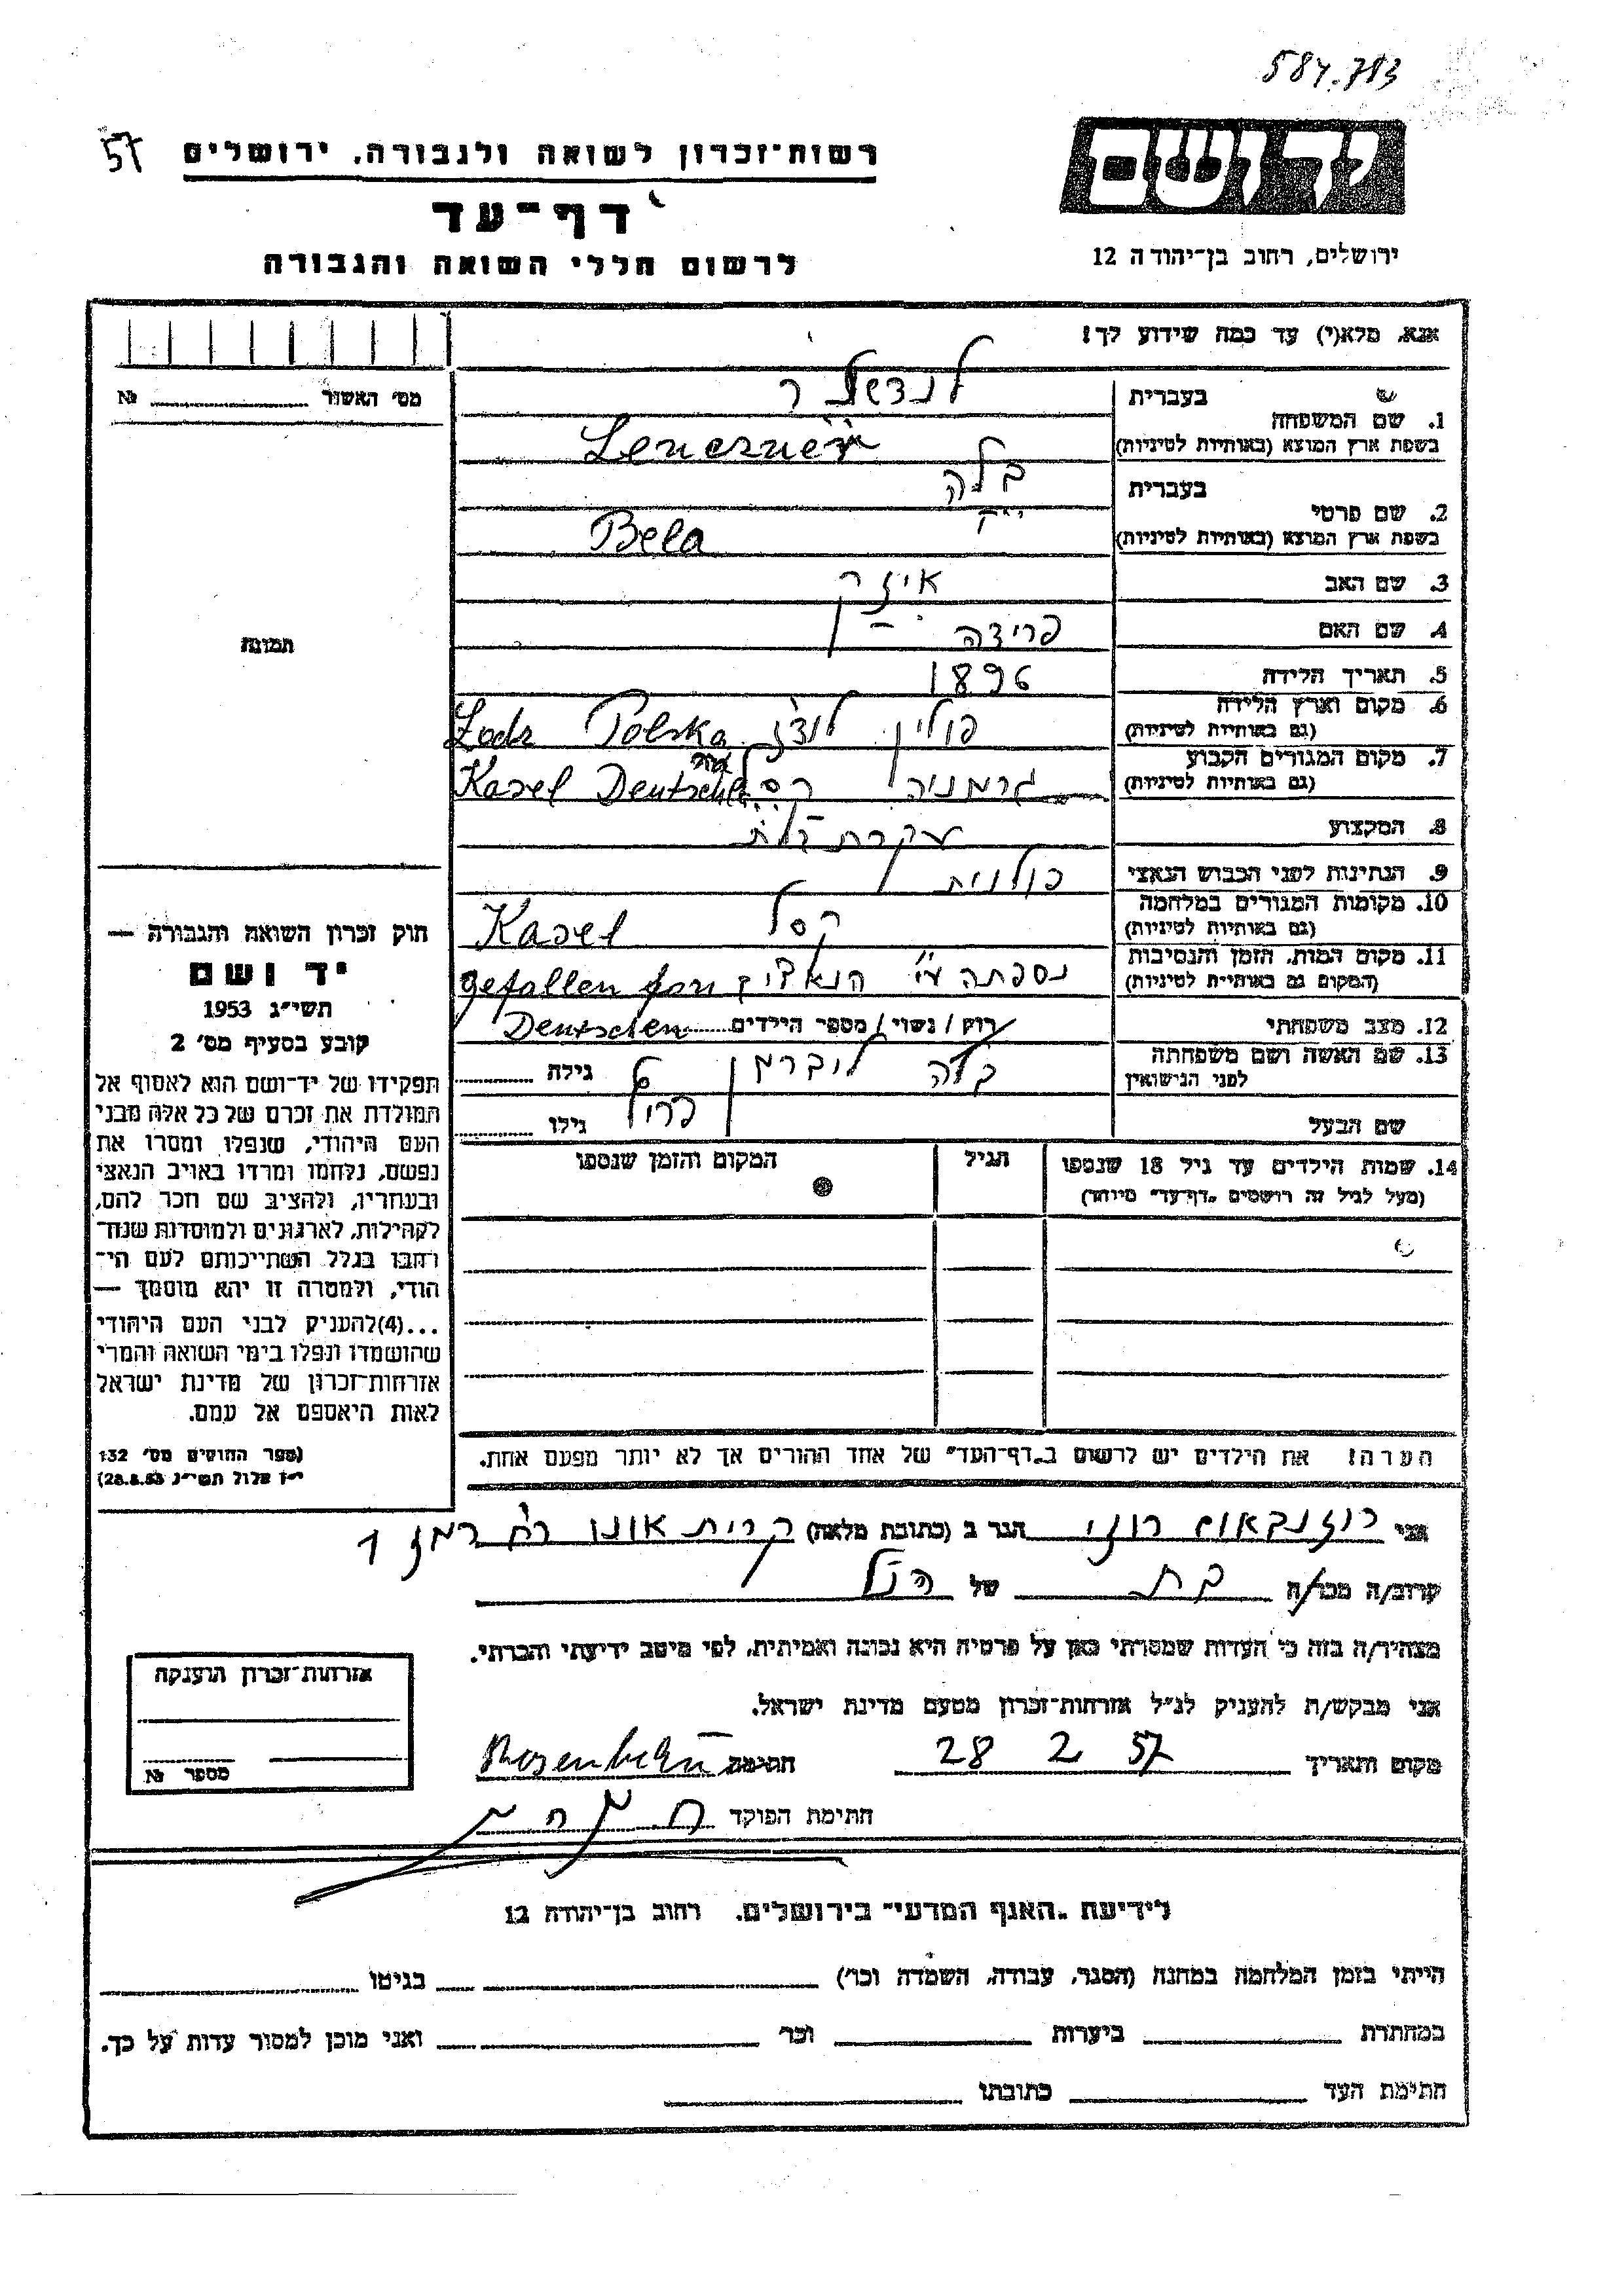 584.783
57
יד ושם
רשות־זכרון לשואה ולגבורה, ירושלים
דף־עד
לרשום חללי השואה והגבורה
ירושלים, רחוב בן־יהודה 12
אנא, מלא(י) עד כמה שידוע לך!
מס׳ האשור № 
בעברית
1. שם המשפחה
בשפת ארץ המוצא (באותיות לטיניות)
בעברית בלה
2. שם פרטי
בשפת ארץ המוצא (באותיות לטיניות) Bela
3. שם האב
4. שם האם פרידה
תמונה
5. תאריך הלידה 1896
6. מקום וארץ הלידה פולין לודז Lodz Polska
(גם באותיות לטיניות)
7. מקום המגורים הקבוע גרמניה קסל Kasel Deutschl
(גם באותיות לטיניות)
8. המקצוע עקרת בית
9. הנתינות לפני הכבוש הנאצי פולנית
10. מקומות המגורים במלחמה קסל Kasel
(גם באותיות לטיניות)
11. מקום המות, הזמן והנסיבות נספתה ע״י הנאצים gefallen fon
(המקום גם באותיות לטיניות)
12. מצב משפחתי רווק / נשוי / מספר הילדים Deutschen
13. שם האשה ושם משפחתה בלה ליברמן גילה
לפני הנישואין
שם הבעל גילו
14. שמות הילדים עד גיל 18 שנספו הגיל המקום והזמן שנספו
(מעל לגיל זה רושמים „דף־עד״ מיוחד)
חוק זכרון השואה והגבורה —
יד ושם
תשי״ג 1953
קובע בסעיף מס׳ 2
תפקידו של יד־ושם הוא לאסוף אל
המולדת את זכרם של כל אלה מבני
העם היהודי, שנפלו ומסרו את
נפשם, נלחמו ומרדו באויב הנאצי
ובעוזריו, ולהציב שם וזכר להם,
לקהילות, לארגונים ולמוסדות שנח־
רחבו בגלל השתייכותם לעם הי־
הודי, ולמטרה זו יהא מוסמך —
...(4)להעניק לבני העם היהודי
שהושמדו ונפלו בימי השואה והמרי
אזרחות־זכרון של מדינת ישראל
לאות היאספם אל עמם.
(ספר החוקים מס׳ 132
י״ז אלול תשי״ג 28.8.53)
הערה! את הילדים יש לרשום ב„דף־העד״ של אחד ההורים אך לא יותר מפעם אחת.
אני רוזנבאום רוני הגר ב (כתובת מלאה) קרית אונו רח רמז 1
קרוב/ה מכר/ה בת של הנ״ל
מצהיר/ה בזה כי העדות שמסרתי כאן על פרטיה היא נכונה ואמיתית, לפי מיטב ידיעתי והכרתי.
אני מבקש/ת להעניק לנ״ל אזרחות־זכרון מטעם מדינת ישראל.
מקום ותאריך 28 2 57 חתימה Rosenbaum
חתימת הפוקד
אזרחות־זכרון הוענקה
מספר №
לידיעת „האגף המדעי״ בירושלים. רחוב בן־יהודה 12
הייתי בזמן המלחמה במחנה (הסגר, עבודה, השמדה וכו׳) בגיטו
במחתרת ביערות וכו׳ ואני מוכן למסור עדות על כך.
חתימת העד כתובתו